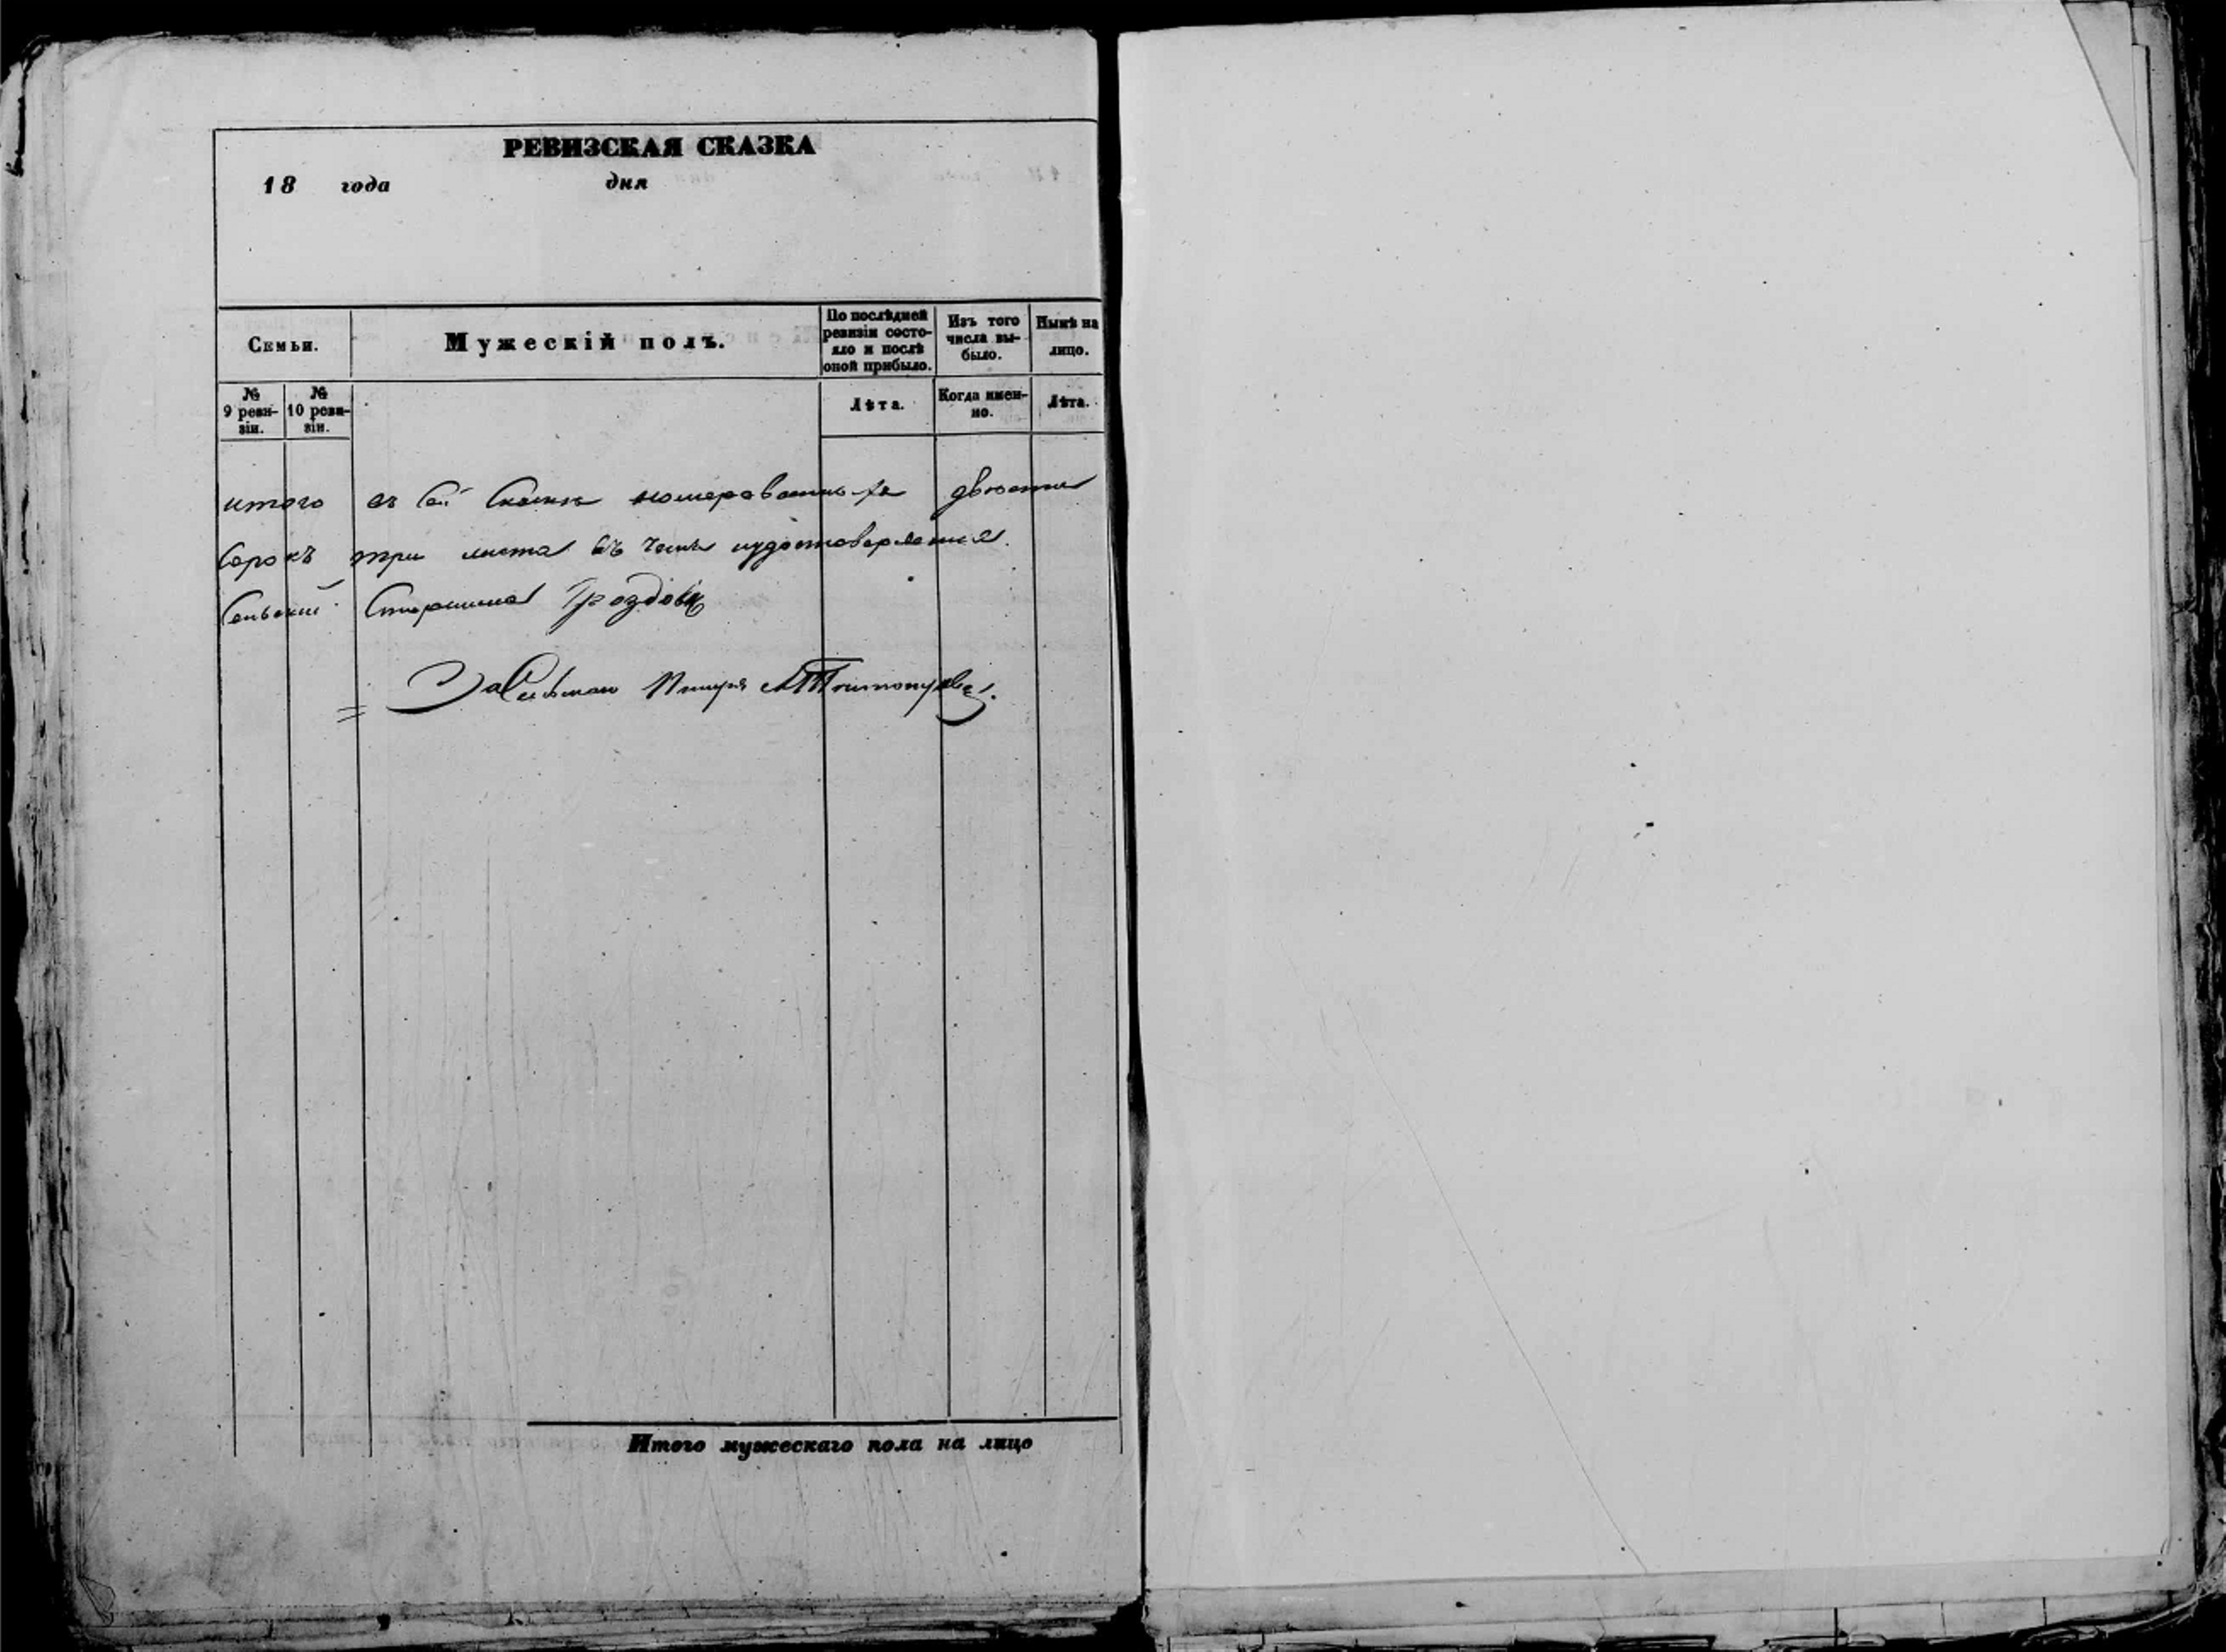 РЕВИЗСКАЯ СКАЗКА
18 года дня
Семьи.
Мужескій полъ.
По послѣдней ревизіи состояло и послѣ оной прибыло.
Изъ того числа выбыло.
Нынѣ на лицо.
№ 9 ревизіи.
№ 10 ревизіи.
Лѣта.
Когда именно.
Лѣта.
итого въ сей Сказкѣ номерованныхъ двѣсти
сорокъ три листа въ чемъ иудостоверяетъ
Сельский Старшина
Итого мужескаго пола на лицо